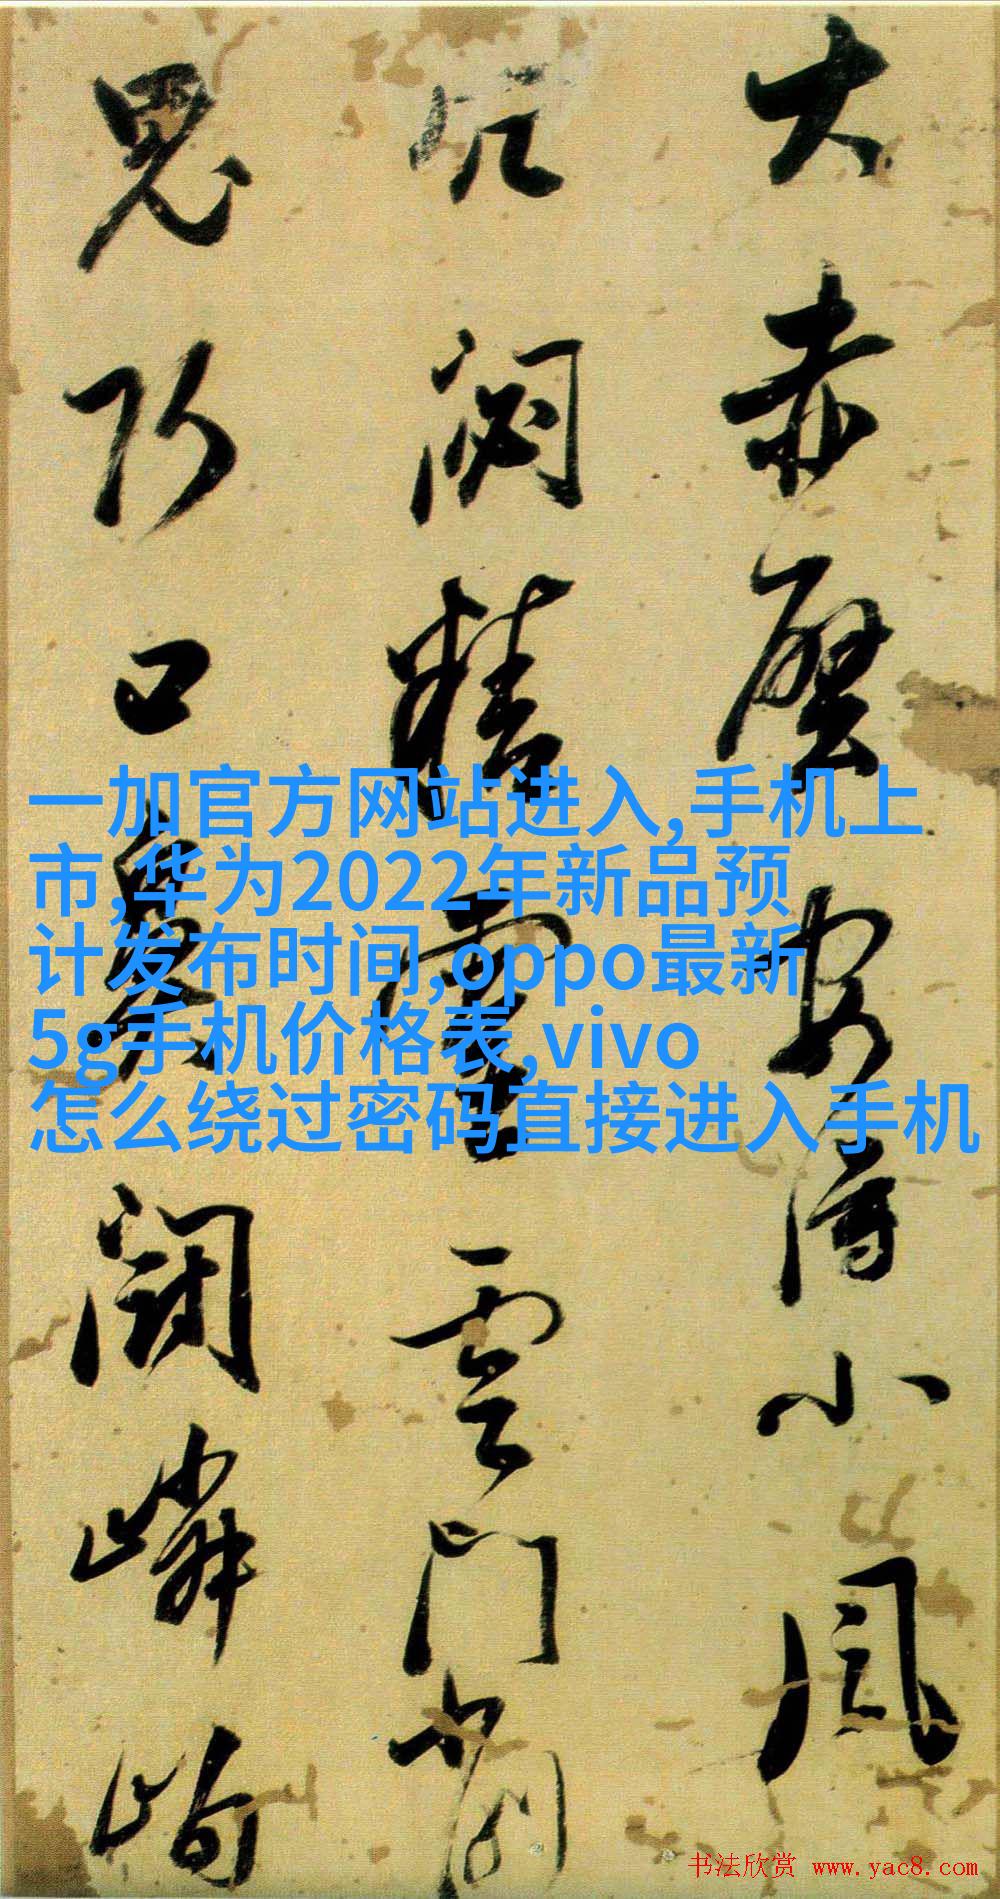 大赤壁安得小風
閟精靈雲門劃
思所口夐闊嶙峋
一加官方网站进入,手机上
市,华为2022年新品预
计发布时间,oppo最新
5g手机价格表,vivo
怎么绕过密码直接进入手机
书法欣赏 www.yac8.com